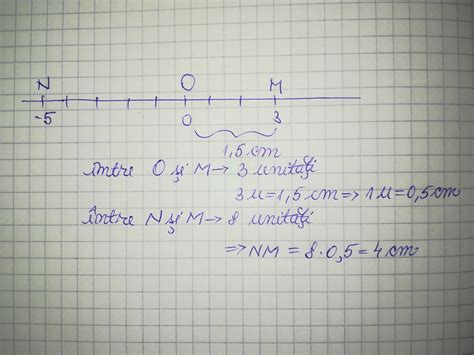 N O M
-5 0 3
1,5 cm
între O și M → 3 unități
3 u = 1,5 cm => 1 u = 0,5 cm
Între N și M → 8 unități
=> NM = 8 · 0,5 = 4 cm